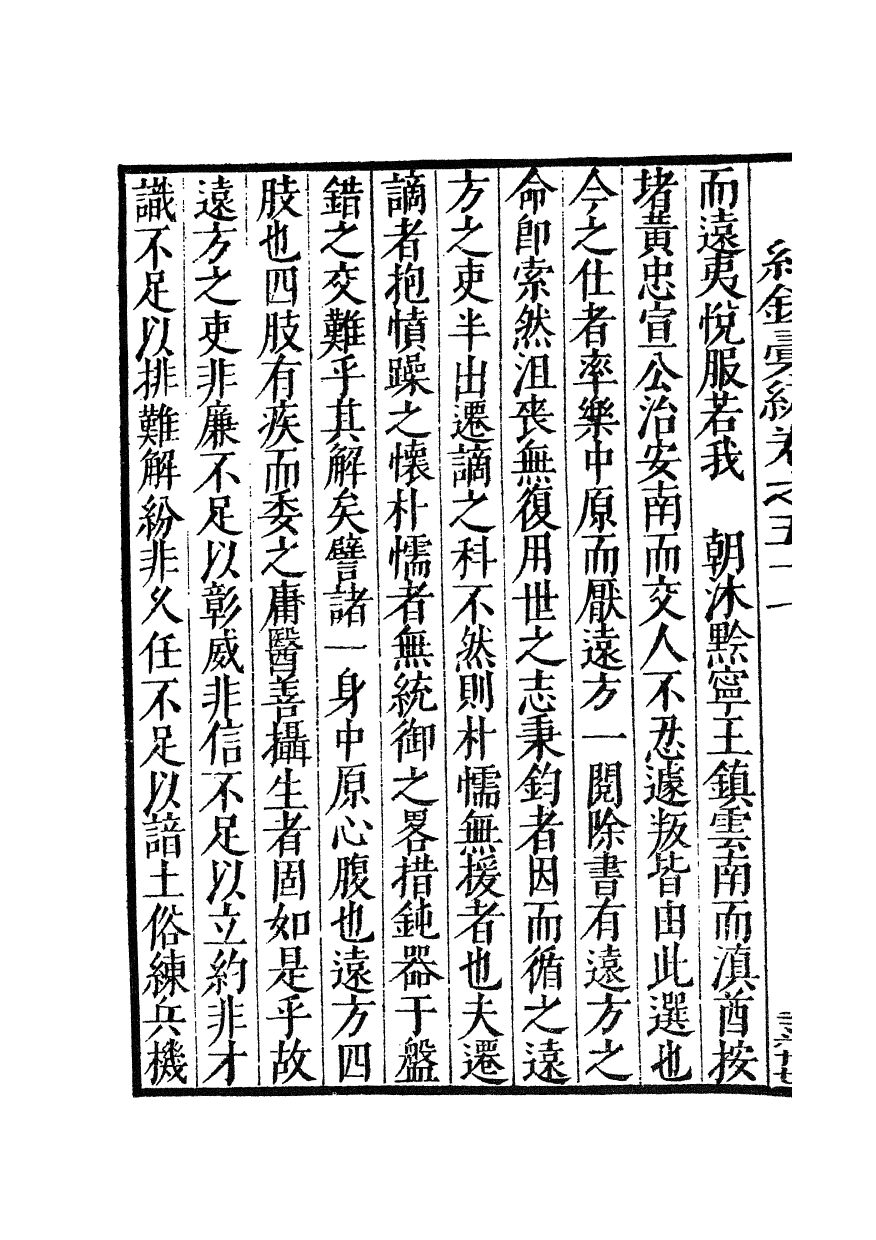 卷之五十一
而遠夷悅服若我　朝沐黔寧王鎮雲南而滇酋按
堵黃忠宣公治安南而交人不忍遽叛皆由此選也
今之仕者率樂中原而厭遠方一閱除書有遠方之
命即索然沮喪無復用世之志秉鈞者因而循之遠
方之吏半出遷謫之科不然則朴懦無援者也夫遷
謫者抱憤躁之懷朴懦者無統御之畧措鈍器于盤
錯之交難乎其解矣譬諸一身中原心腹也遠方四
肢也四肢有疾而委之庸醫善攝生者固如是乎故
遠方之吏非廉不足以彰威非信不足以立約非才
識不足以排難解紛非久任不足以諳土俗練兵機